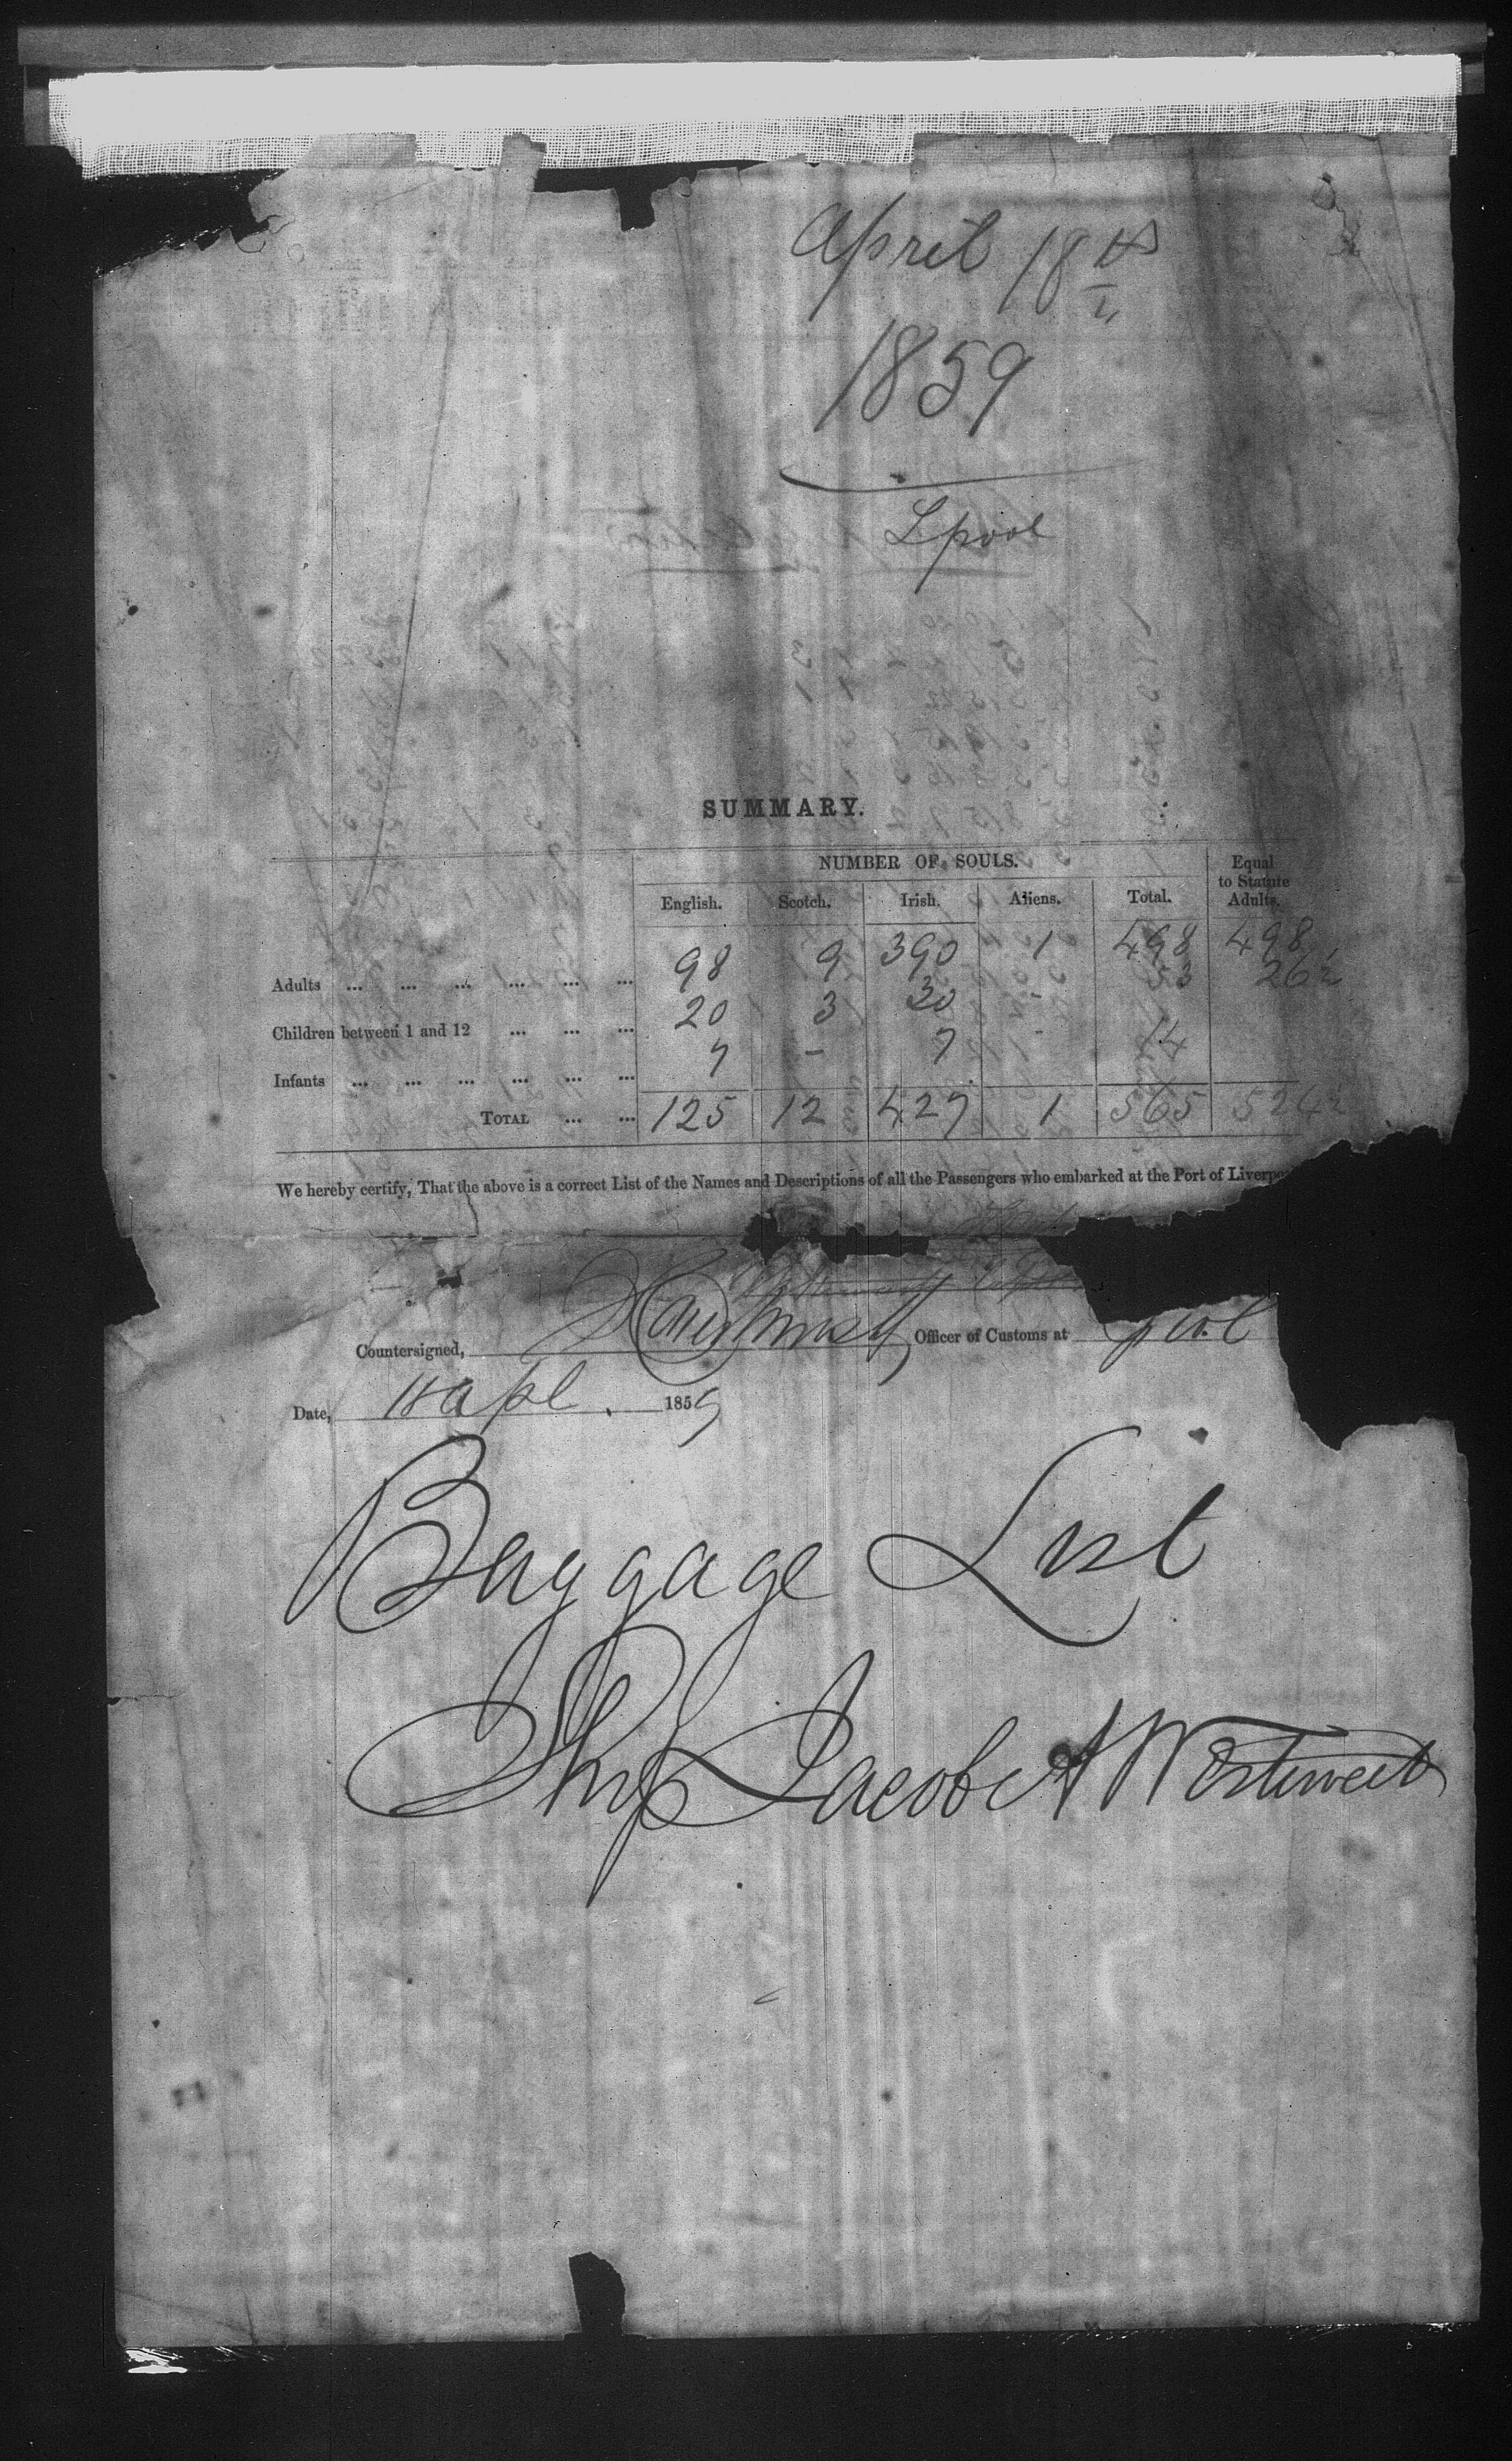 April 18th
1859
Lpool
SUMMARY.
NUMBER OF SOULS. Equal to Statute Adults.
English. Scotch. Irish. Aliens. Total.
Adults ... ... ... ... ... ... 98 9 390 1 498 498
Children between 1 and 12 ... ... ... 20 3 30 - 53 26½
Infants ... ... ... ... ... ... 7 - 7 - 14
TOTAL ... ... 125 12 427 1 565 524½
We hereby certify, That the above is a correct List of the Names and Descriptions of all the Passengers who embarked at the Port of Liverpo
Countersigned, Officer of Customs at pool
Date, 18 Apl. 1859
Baggage List
Ship Jacob A Westervelt